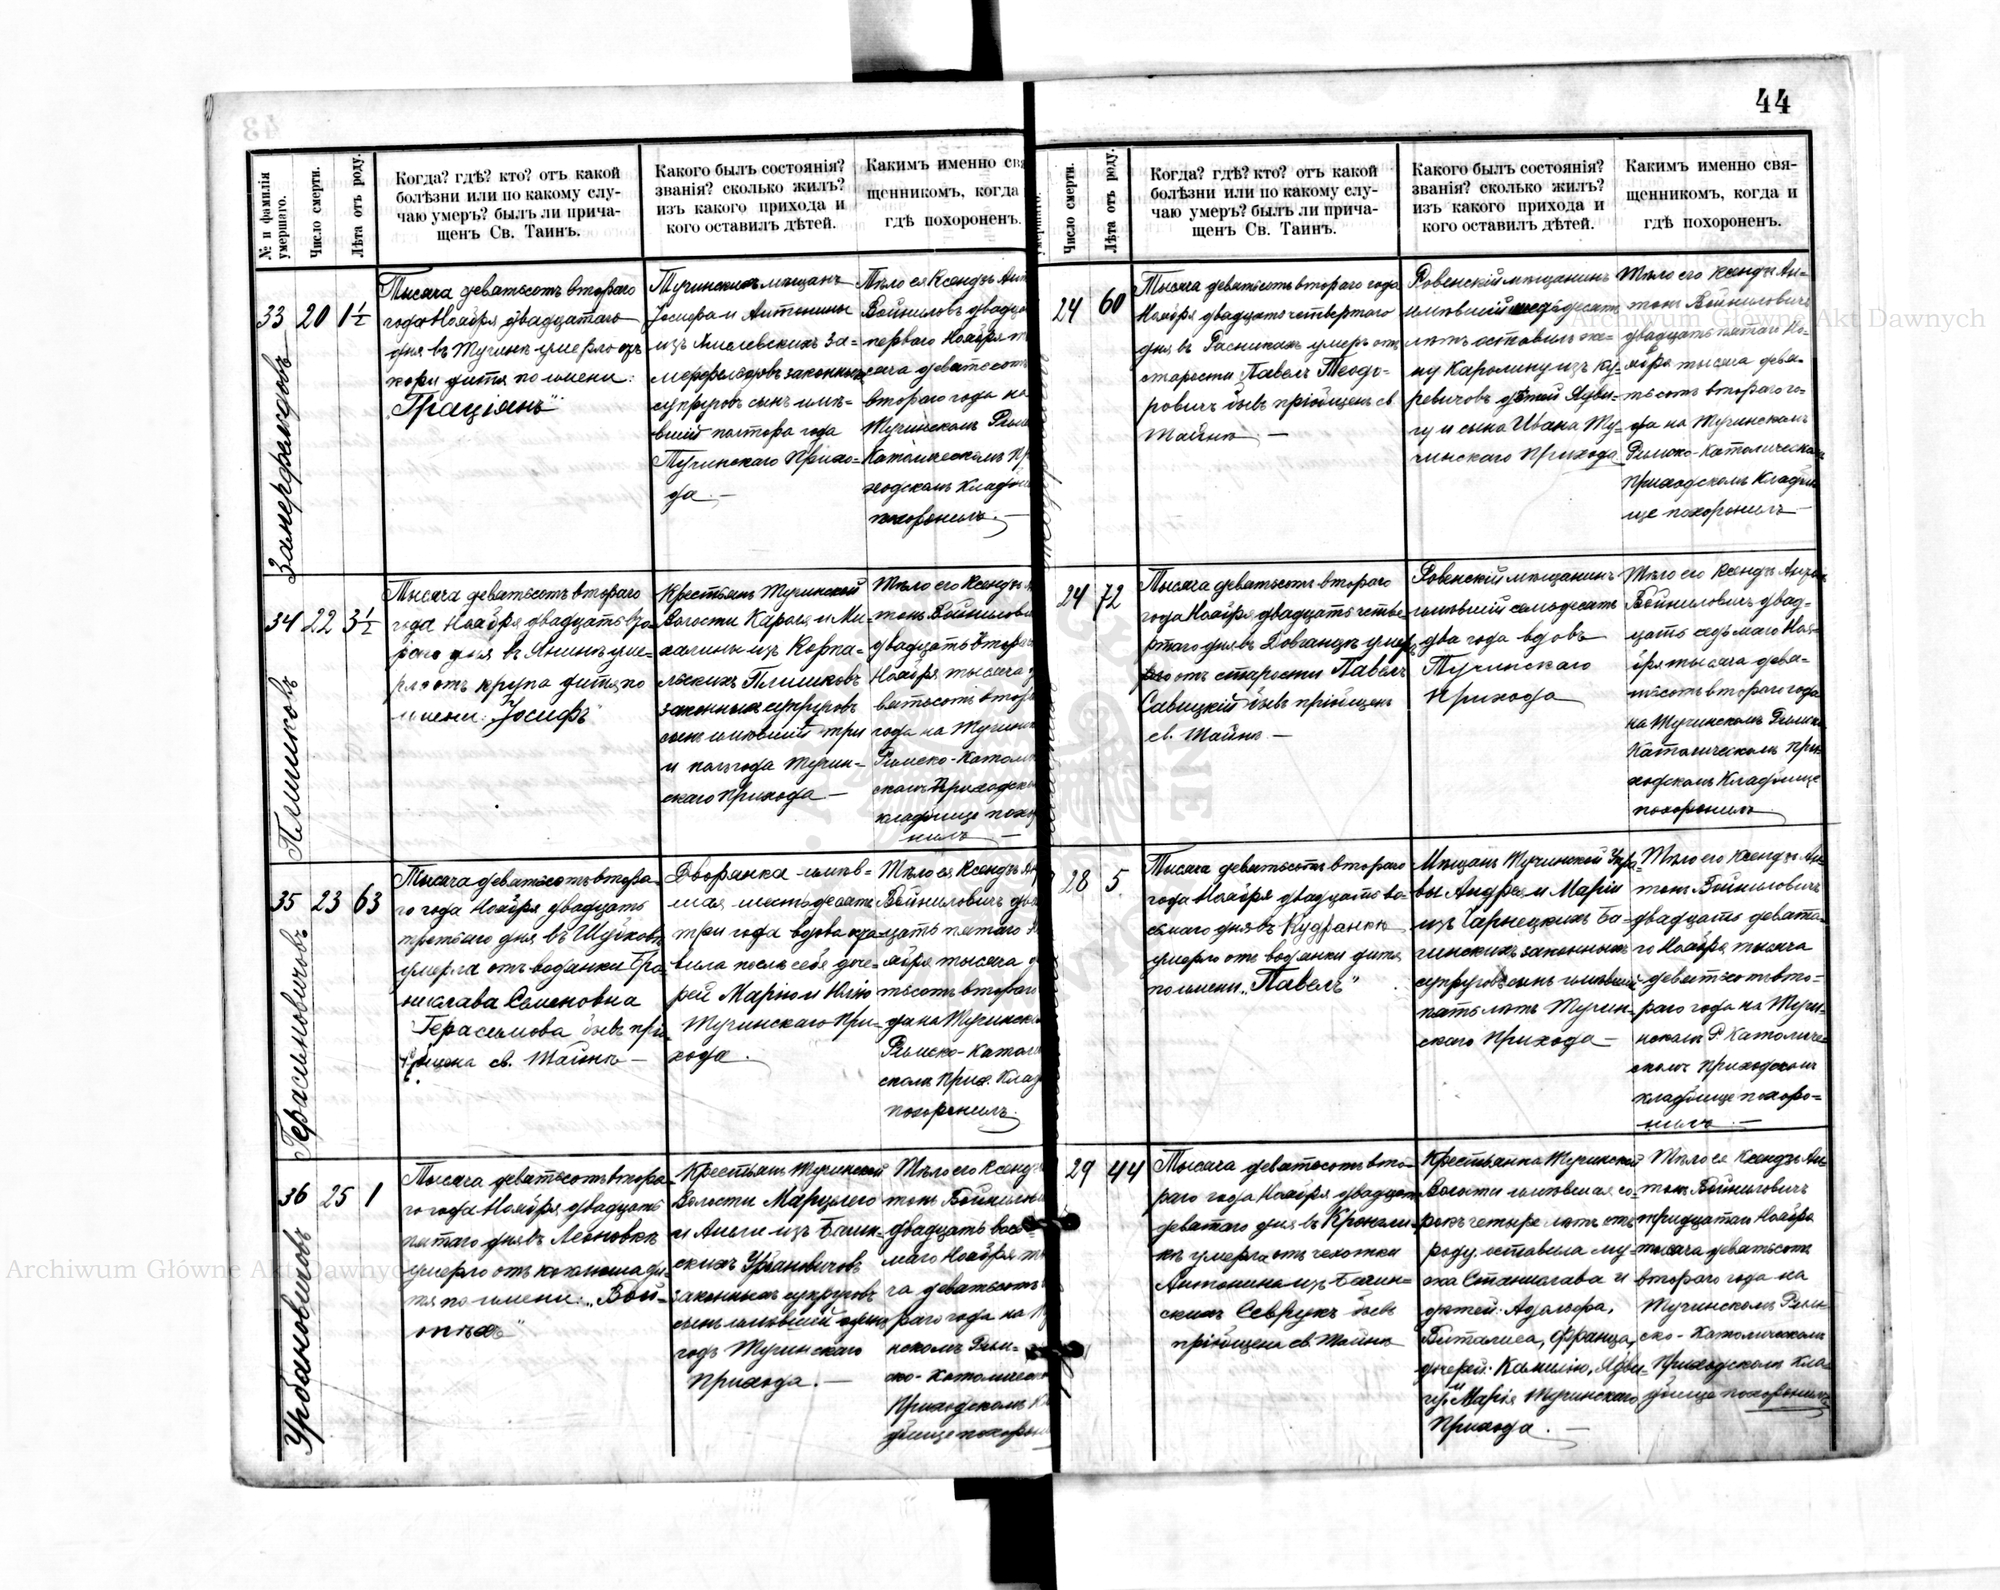 44
№ и фамилія умершаго.
Число смерти.
Лѣта отъ роду.
Когда? гдѣ? кто? отъ какой
болѣзни или по какому слу-
чаю умеръ? былъ ли прича-
щенъ Св. Таинъ.
Какого былъ состоянія?
званія? сколько жилъ?
изъ какого прихода и
кого оставилъ дѣтей.
Какимъ именно свя
щенникомъ, когда
гдѣ похороненъ.
33
20
1½
Замерфальдовъ
Тысяча девятьсотъ второго
года Ноября двадцатаго
дня въ Тучинѣ умерло отъ
кори дитя по имени:
„Граціянъ"
Тучинскихъ мѣщанъ
Іосифа и Антонины
изъ
законныхъ
супруговъ сынъ имѣ-
вшій полтора года
Тучинскаго Прихо-
да.—
Тѣло ея Ксендзъ Ант
Войниловъ двадца
перваго Ноября т
сяча девятьсотъ
второго года на
Тучинскомъ Римс
Католическомъ Пр
ходскомъ кладби
похоронилъ.—
34
22
3½
Плишковъ
Тысяча девятьсотъ второго
года Ноября двадцать вто-
рого дня въ Янинѣ уме-
рло отъ крупа дитя по
имени: „Іосифъ"
Крестьянъ Тучинской
Волости Кароля и Ми-
халины изъ Корпа-
льскихъ Плишковъ
законныхъ супруговъ
сынъ имѣвшій три
и полгода Тучин-
скаго Прихода.—
Тѣло его Ксендзъ А
тонъ Войнилови
двадцать второго
Ноября тысяча д
вятьсотъ второ
года на Тучинс
Римско-Католи
скомъ Приходско
кладбище похор
нилъ —
35
23
63
Герасимовичовъ
Тысяча девятьсотъ второ-
го года Ноября двадцать
третьяго дня въ Шубковѣ
умерла отъ водянки Бро-
нислава Семеновна
Герасимова бывъ прі-
общена св. Тайнъ —
Дворянка имѣв-
шая шестьдесятъ
три года вдова оста-
вила послѣ себя доче-
рей Марію и Юлію
Тучинскаго При-
хода.
Тѣло ея Ксендзъ Ан
Войниловичъ два
цать пятаго Н
ября тысяча д
тьсотъ второго
да на Тучинско
Римско-Католи
скомъ Прих. Клад
похоронилъ.
36
25
1
Урбановичовъ
Тысяча девятьсотъ второ-
го года Ноября двадцать
пятаго дня въ Леоновкѣ
умерло отъ коклюша ди-
тя по имени: „Вой-
тѣхъ"
Крестьянъ Тучинской
Волости Марцелего
и Анели изъ Балин-
скихъ Урбановичовъ
законныхъ супруговъ
сынъ имѣвшій одинъ
годъ Тучинскаго
Прихода.—
Тѣло его Ксендзъ
тонъ Войнилови
двадцать вось-
маго Ноября ты
ча девятьсотъ
раго года на Ту
нскомъ Рим-
ско-Католическо
Приходскомъ Кла
бище похорони
умершаго.
Число смерти.
Лѣта отъ роду.
Когда? гдѣ? кто? отъ какой
болѣзни или по какому слу-
чаю умеръ? былъ ли прича-
щенъ Св. Таинъ.
Какого былъ состоянія?
званія? сколько жилъ?
изъ какого прихода и
кого оставилъ дѣтей.
Какимъ именно свя-
щенникомъ, когда и
гдѣ похороненъ.
24
60
Тысяча девятьсотъ второго года
Ноября двадцать четвертаго
дня въ Расникахъ умеръ отъ
старости Павелъ Теодо-
ровичъ бывъ пріобщенъ св
Тайнъ —
Ровенскій мѣщанинъ
имѣвшій шестьдесятъ
лѣтъ оставилъ же-
ну Каролину изъ Ку-
ревичовъ дѣтей Ядви-
гу и сына Ивана Ту-
чинскаго Прихода
Тѣло его Ксендзъ Ан-
тонъ Войниловичъ
двадцать пятаго Но-
ября тысяча девя-
тьсотъ второго го-
да на Тучинскомъ
Римско-Католическомъ
Приходскомъ Кладби-
ще похоронилъ —
24
72
Тысяча девятьсотъ второго
года Ноября двадцать четве-
ртаго дня въ Дованцѣ умер-
отъ старости Павелъ
Савицкій бывъ пріобщенъ
св. Тайнъ.—
Ровенскій мѣщанинъ
имѣвшій семьдесятъ
два года вдовъ
Тучинскаго
Прихода
Тѣло его Ксендзъ Антонъ
Войниловичъ двад-
цать седьмаго Ноя-
бря тысяча девя-
тьсотъ второго года
на Тучинскомъ Римско
Католическомъ При-
ходскомъ Кладбище
похоронилъ
28
5.
Тысяча девятьсотъ второго
года Ноября двадцать во-
сьмаго дня въ Кудранкѣ
умерло отъ водянки дитя
по имени „Павелъ"
Мѣщанъ Тучинской Упра-
вы Андрея и Маріи
изъ Чарнецкихъ Ба-
гинскихъ законныхъ
супруговъ сынъ имѣвшій
пять лѣтъ Тучин-
скаго Прихода —
Тѣло его Ксендзъ Ан-
тонъ Войниловичъ
двадцать девята-
го Ноября тысяча
девятьсотъ вто-
раго года на Тучи-
нскомъ Р. Католиче-
скомъ Приходскомъ
кладбище похоро-
нилъ.—
29
44
Тысяча девятьсотъ вто-
раго года Ноября двадцать
девятаго дня въ
умерла отъ чахотки
Антонина изъ Балин-
скихъ Севрукъ бывъ
пріобщена св. Тайнъ
Крестьянка Тучинской
Волости имѣвшая со-
рокъ четыре лѣтъ отъ
роду оставила му-
жа Станислава и
дѣтей: Адольфа,
Виталиса, Франца,
дочерей: Камилію, Ядви-
гу и Марія Тучинскаго
Прихода.—
Тѣло ея Ксендзъ Ан
тонъ Войниловичъ
тридцатаго Ноября
тысяча девятьсотъ
второго года на
Тучинскомъ Рим-
ско-Католическомъ
Приходскомъ Кла-
дбище похоронилъ
Archiwum Główne Akt Dawnych
Archiwum Główne Akt Dawnych